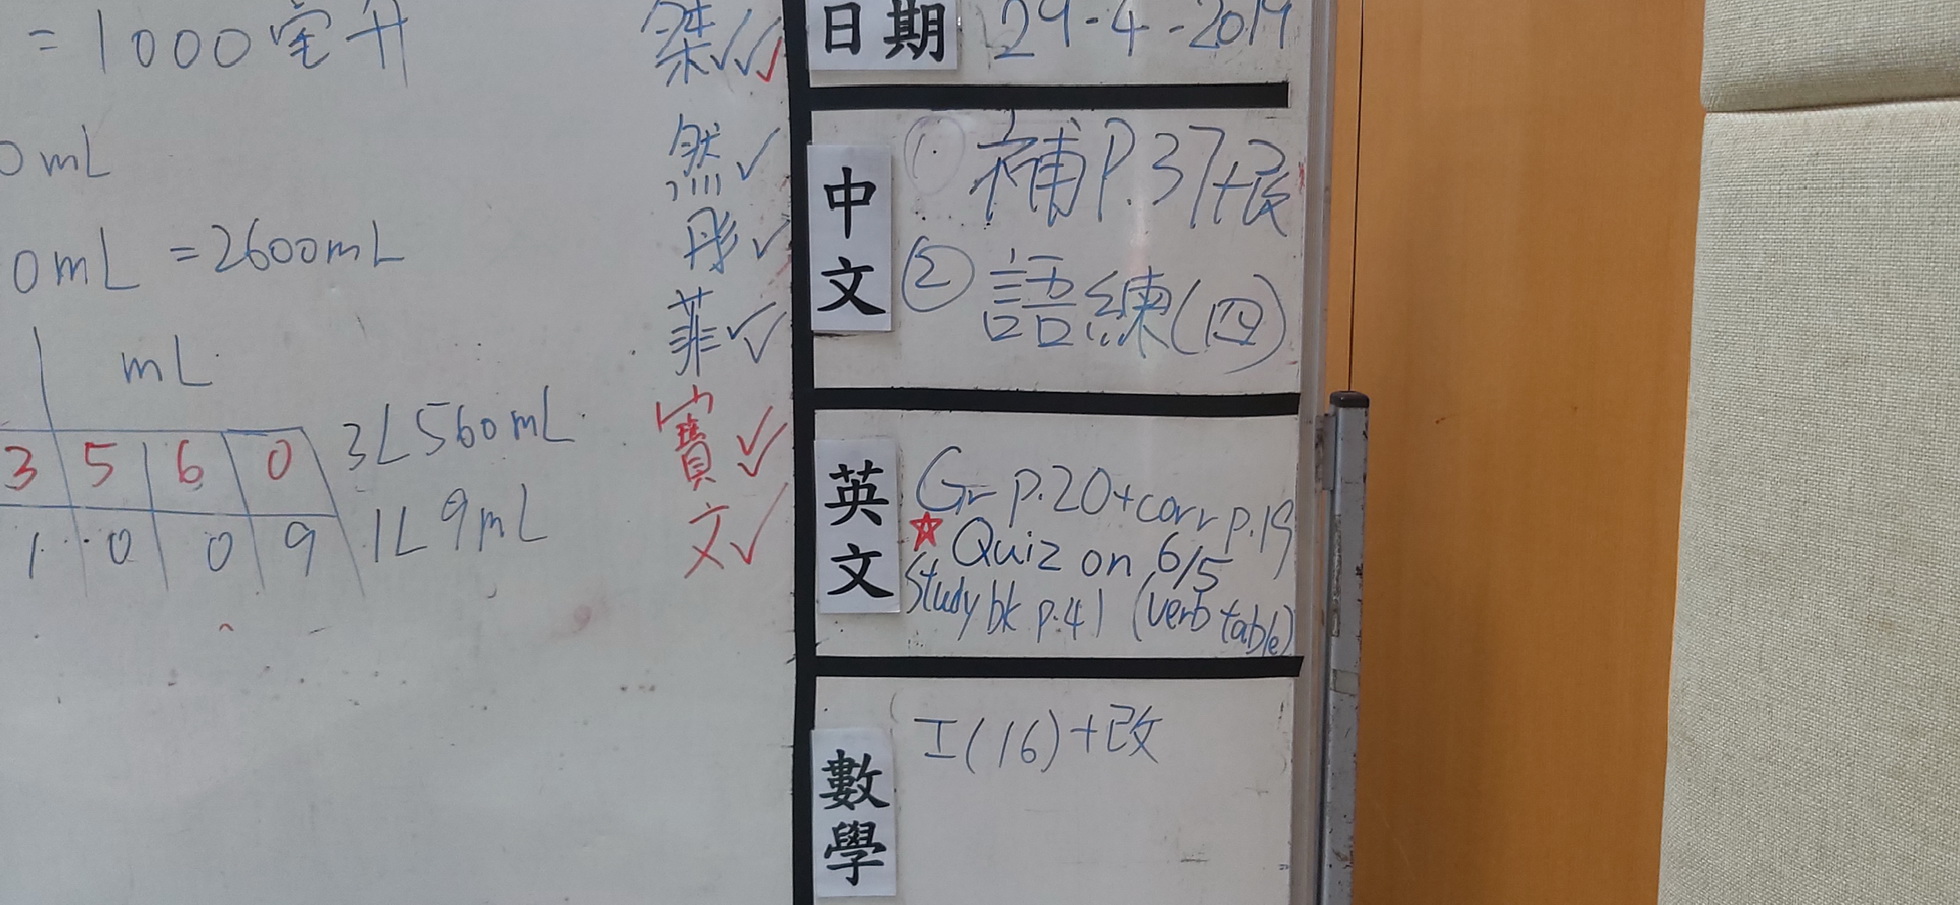 = 1000毫升
0mL
0mL = 2600mL
mL
3 5 6 0 3L560mL
1 0 0 9 1L 9mL
傑
然
彤
菲
寶
文
日期 29-4-2019
中文
① 補P.37+改
② 語練(四)
英文
Gr p.20+corr p.19
☆ Quiz on 6/5
Study bk p.41 (verb table)
數學
工(16)+改